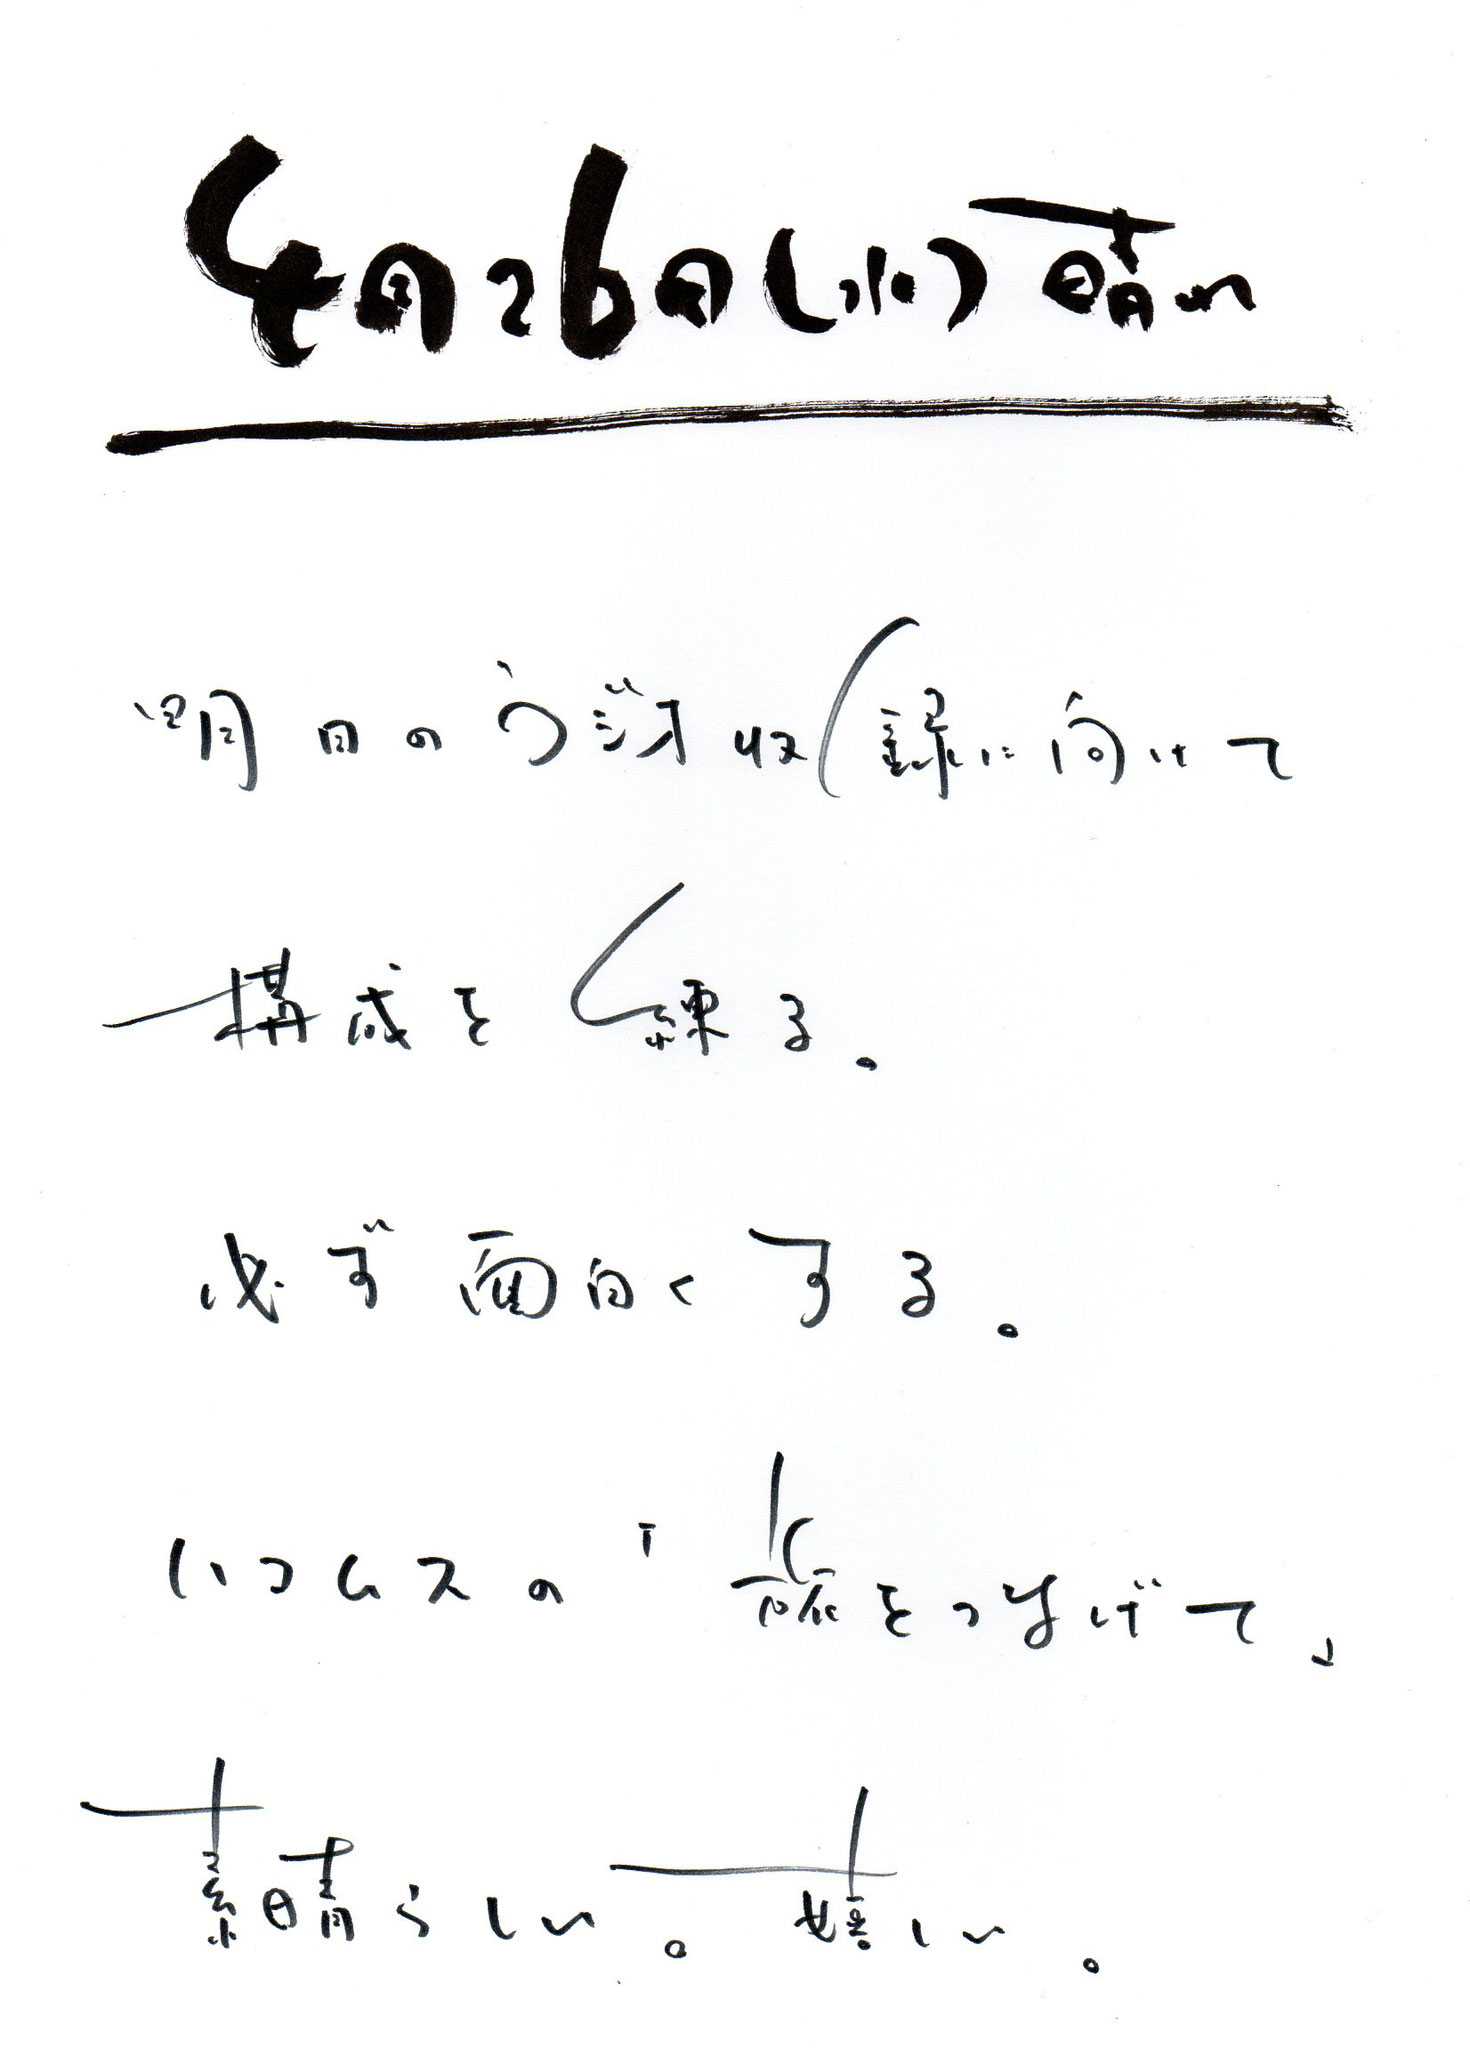 4月26日(水) 晴れ
明日のラジオ収録に向けて
構成を練る。
必ず面白くする。
ハコムスの「旅をつなげて」
素晴らしい。嬉しい。